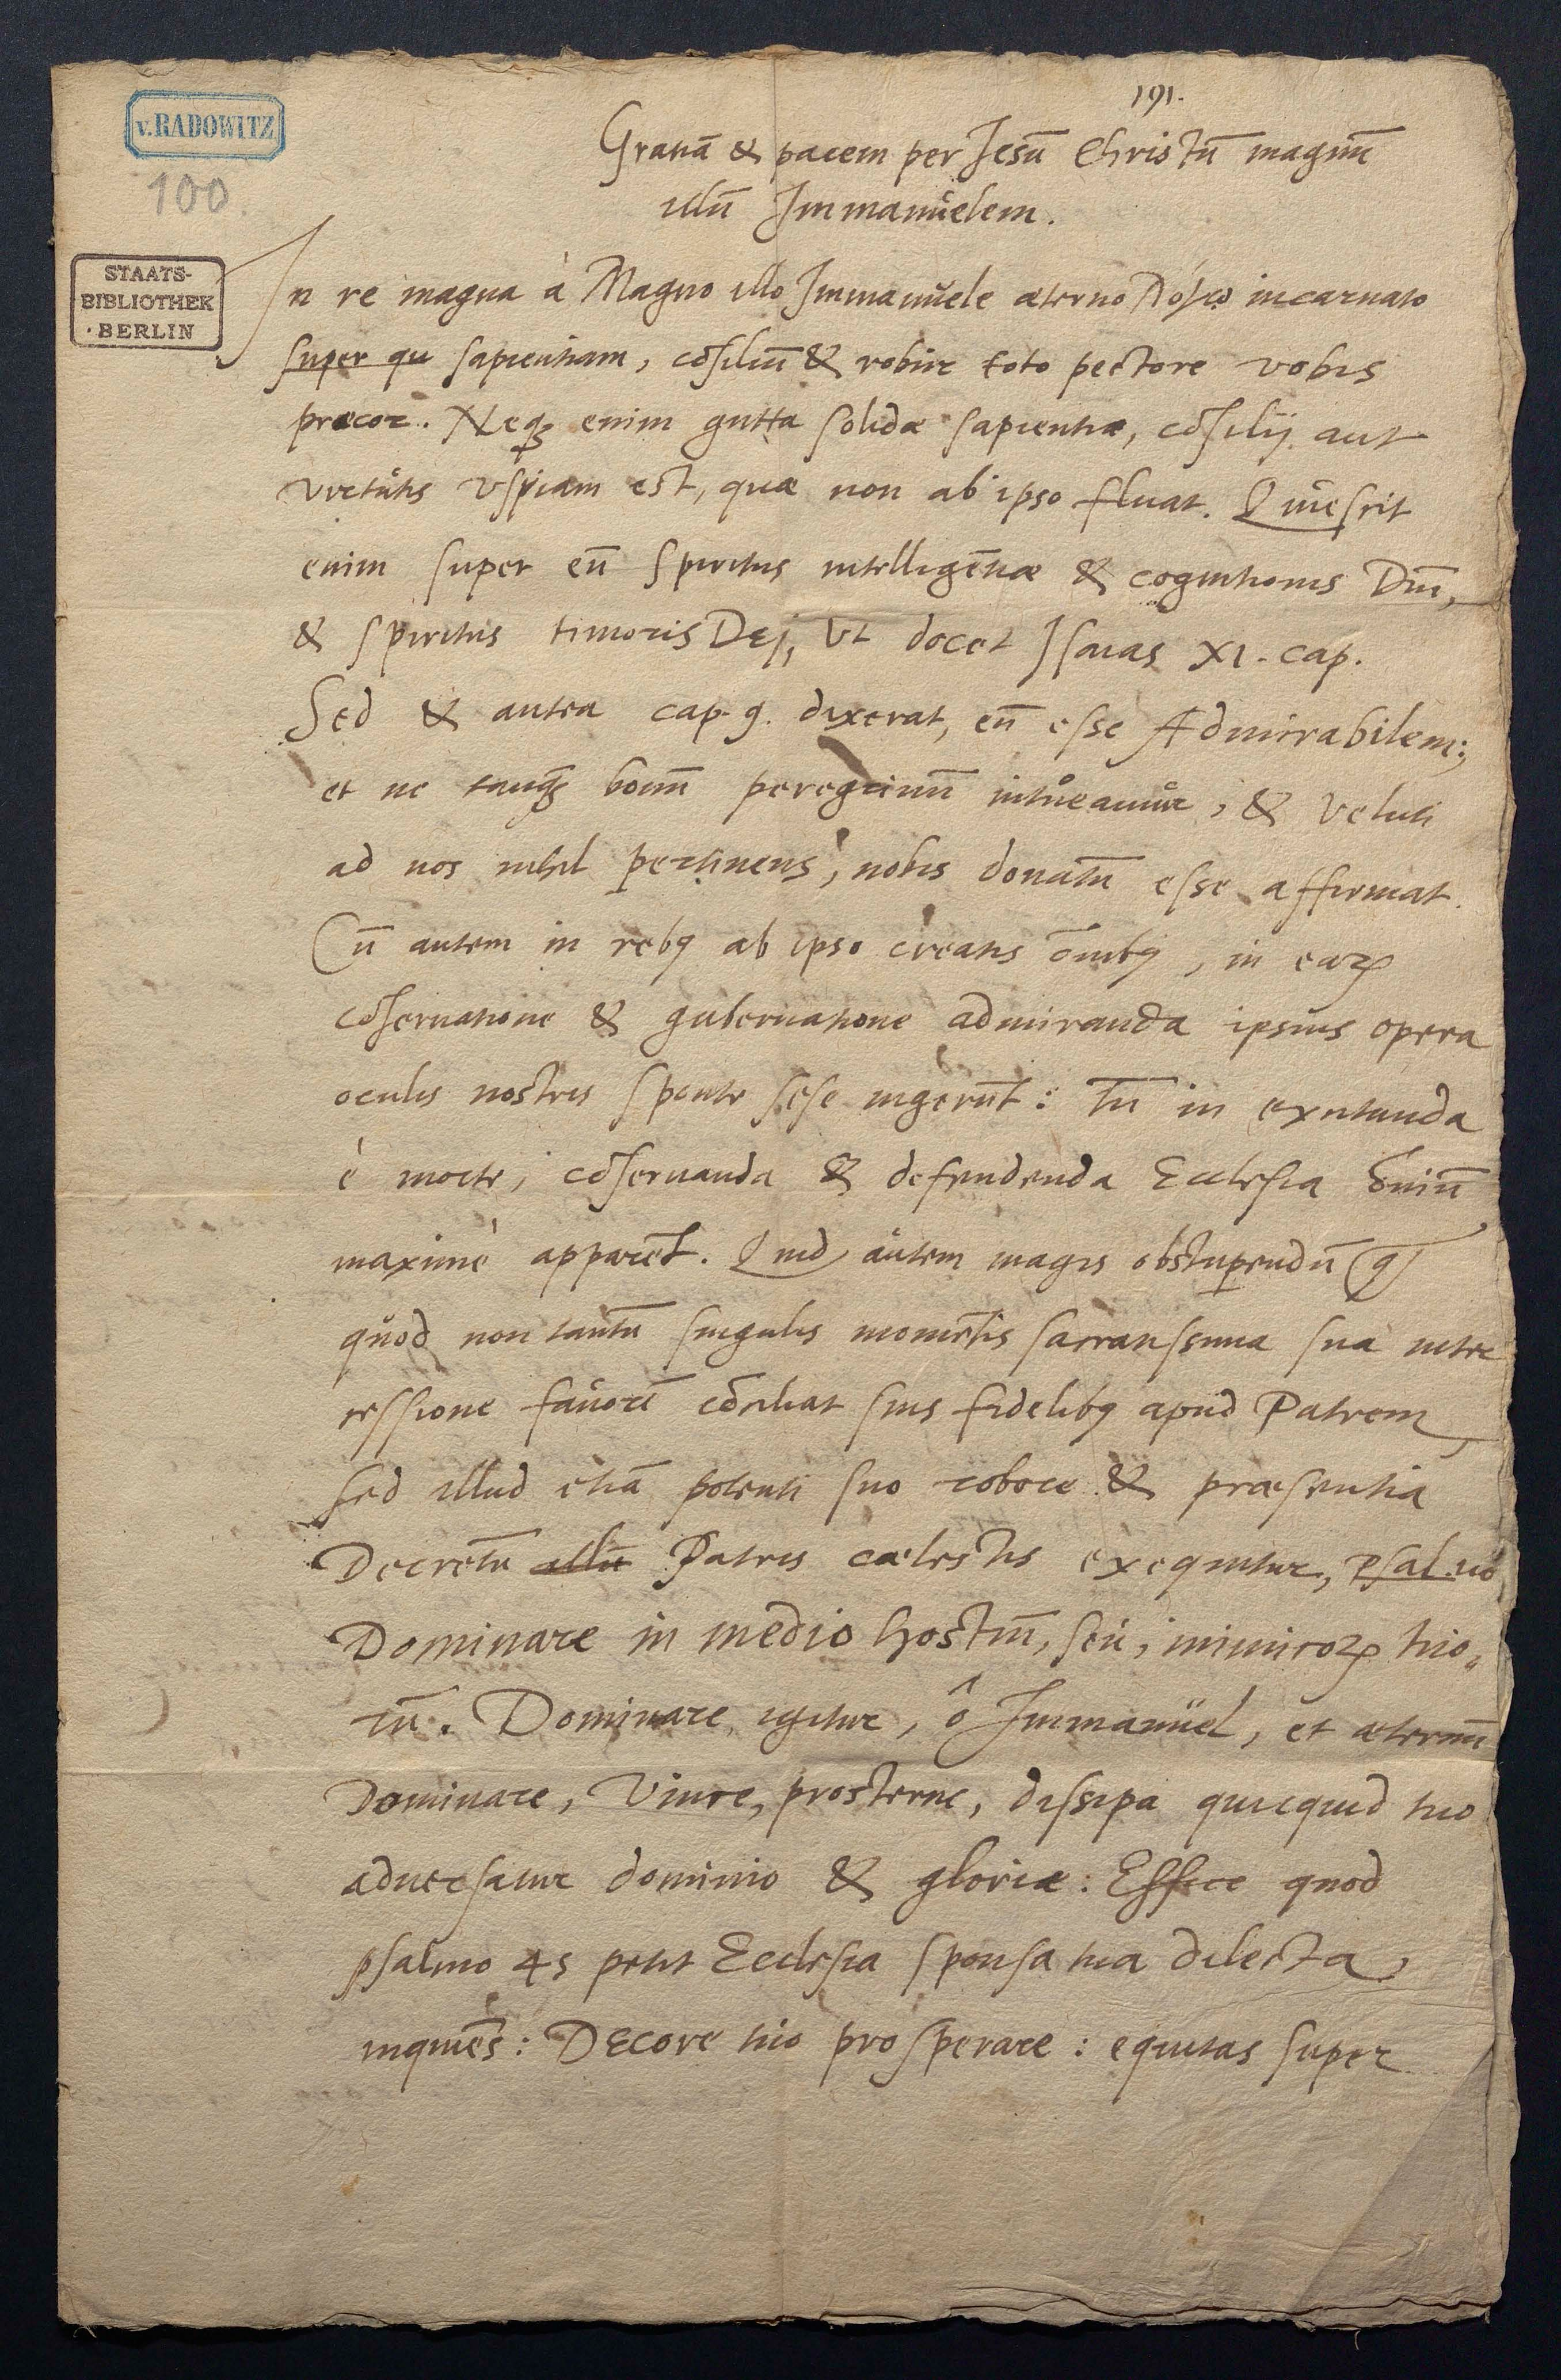 191.
v. RADOWITZ
100
STAATS-
BIBLIOTHEK
· BERLIN
Gratiā & pacem per Jesū Christū magnū
illū Jmmanŭelem.
Jn re magna à Magno illo Jmmanŭele æterno λόγῳ incarnato
super qu sapientiam, cōsiliū & robur toto pectore vobis
præcor. Neqȝ enim gutta solidæ sapientiæ, cōsilij aut
virtŭtis vspiam est, quæ non ab ipso fluat. Quiescit
enim super eū spiritus intelligētiæ & cognitionis Dnī,
& spiritus timoris Dej, Vt docet Jsaias XI. cap.
Sed & antea cap. 9. dixerat, eū esse Admirabilem;
et ne tanqȝ bonū peregrinū intŭeamŭr, & veluti
ad nos nihil pertinens, nobis donatū esse affirmat.
Cū autem in rebꝰ ab ipso creatis ōmibꝰ, in eaꝝ
cōseruatione & gubernatione admiranda ipsius opera
oculis nostris sponte sese ingerūt: tū in excitanda
è morte, cōseruanda & defendenda Ecclesia ōmiū
maximè apparēt. Quid aŭtem magis obstupendū
qŭod non tantū singulis momētis sacratissima sua inter
cessione faŭorē cōciliat suis fidelibꝰ apŭd Patrem
sed illud etiā potenti suo robore & præsentia
Decretū illū Patris cælestis exequitur, Psal. 110
Dominare in medio hostiū, seŭ, inimicoꝝ tuo-
rū. Dominare igitur, ô Jmmanŭel, et æternū
Dominare, Vince, prosterne, dissipa quicquid tuo
aduersatur dominio & gloriæ: Effice quod
psalmo 45 petit Ecclesia sponsa tua dilecta
inquiēs: Decore tuo prosperare: equitas super